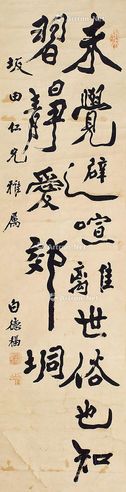 未覺辟喧離世俗也知
習靜愛郊坰
坂田仁兄雅屬
白德楊